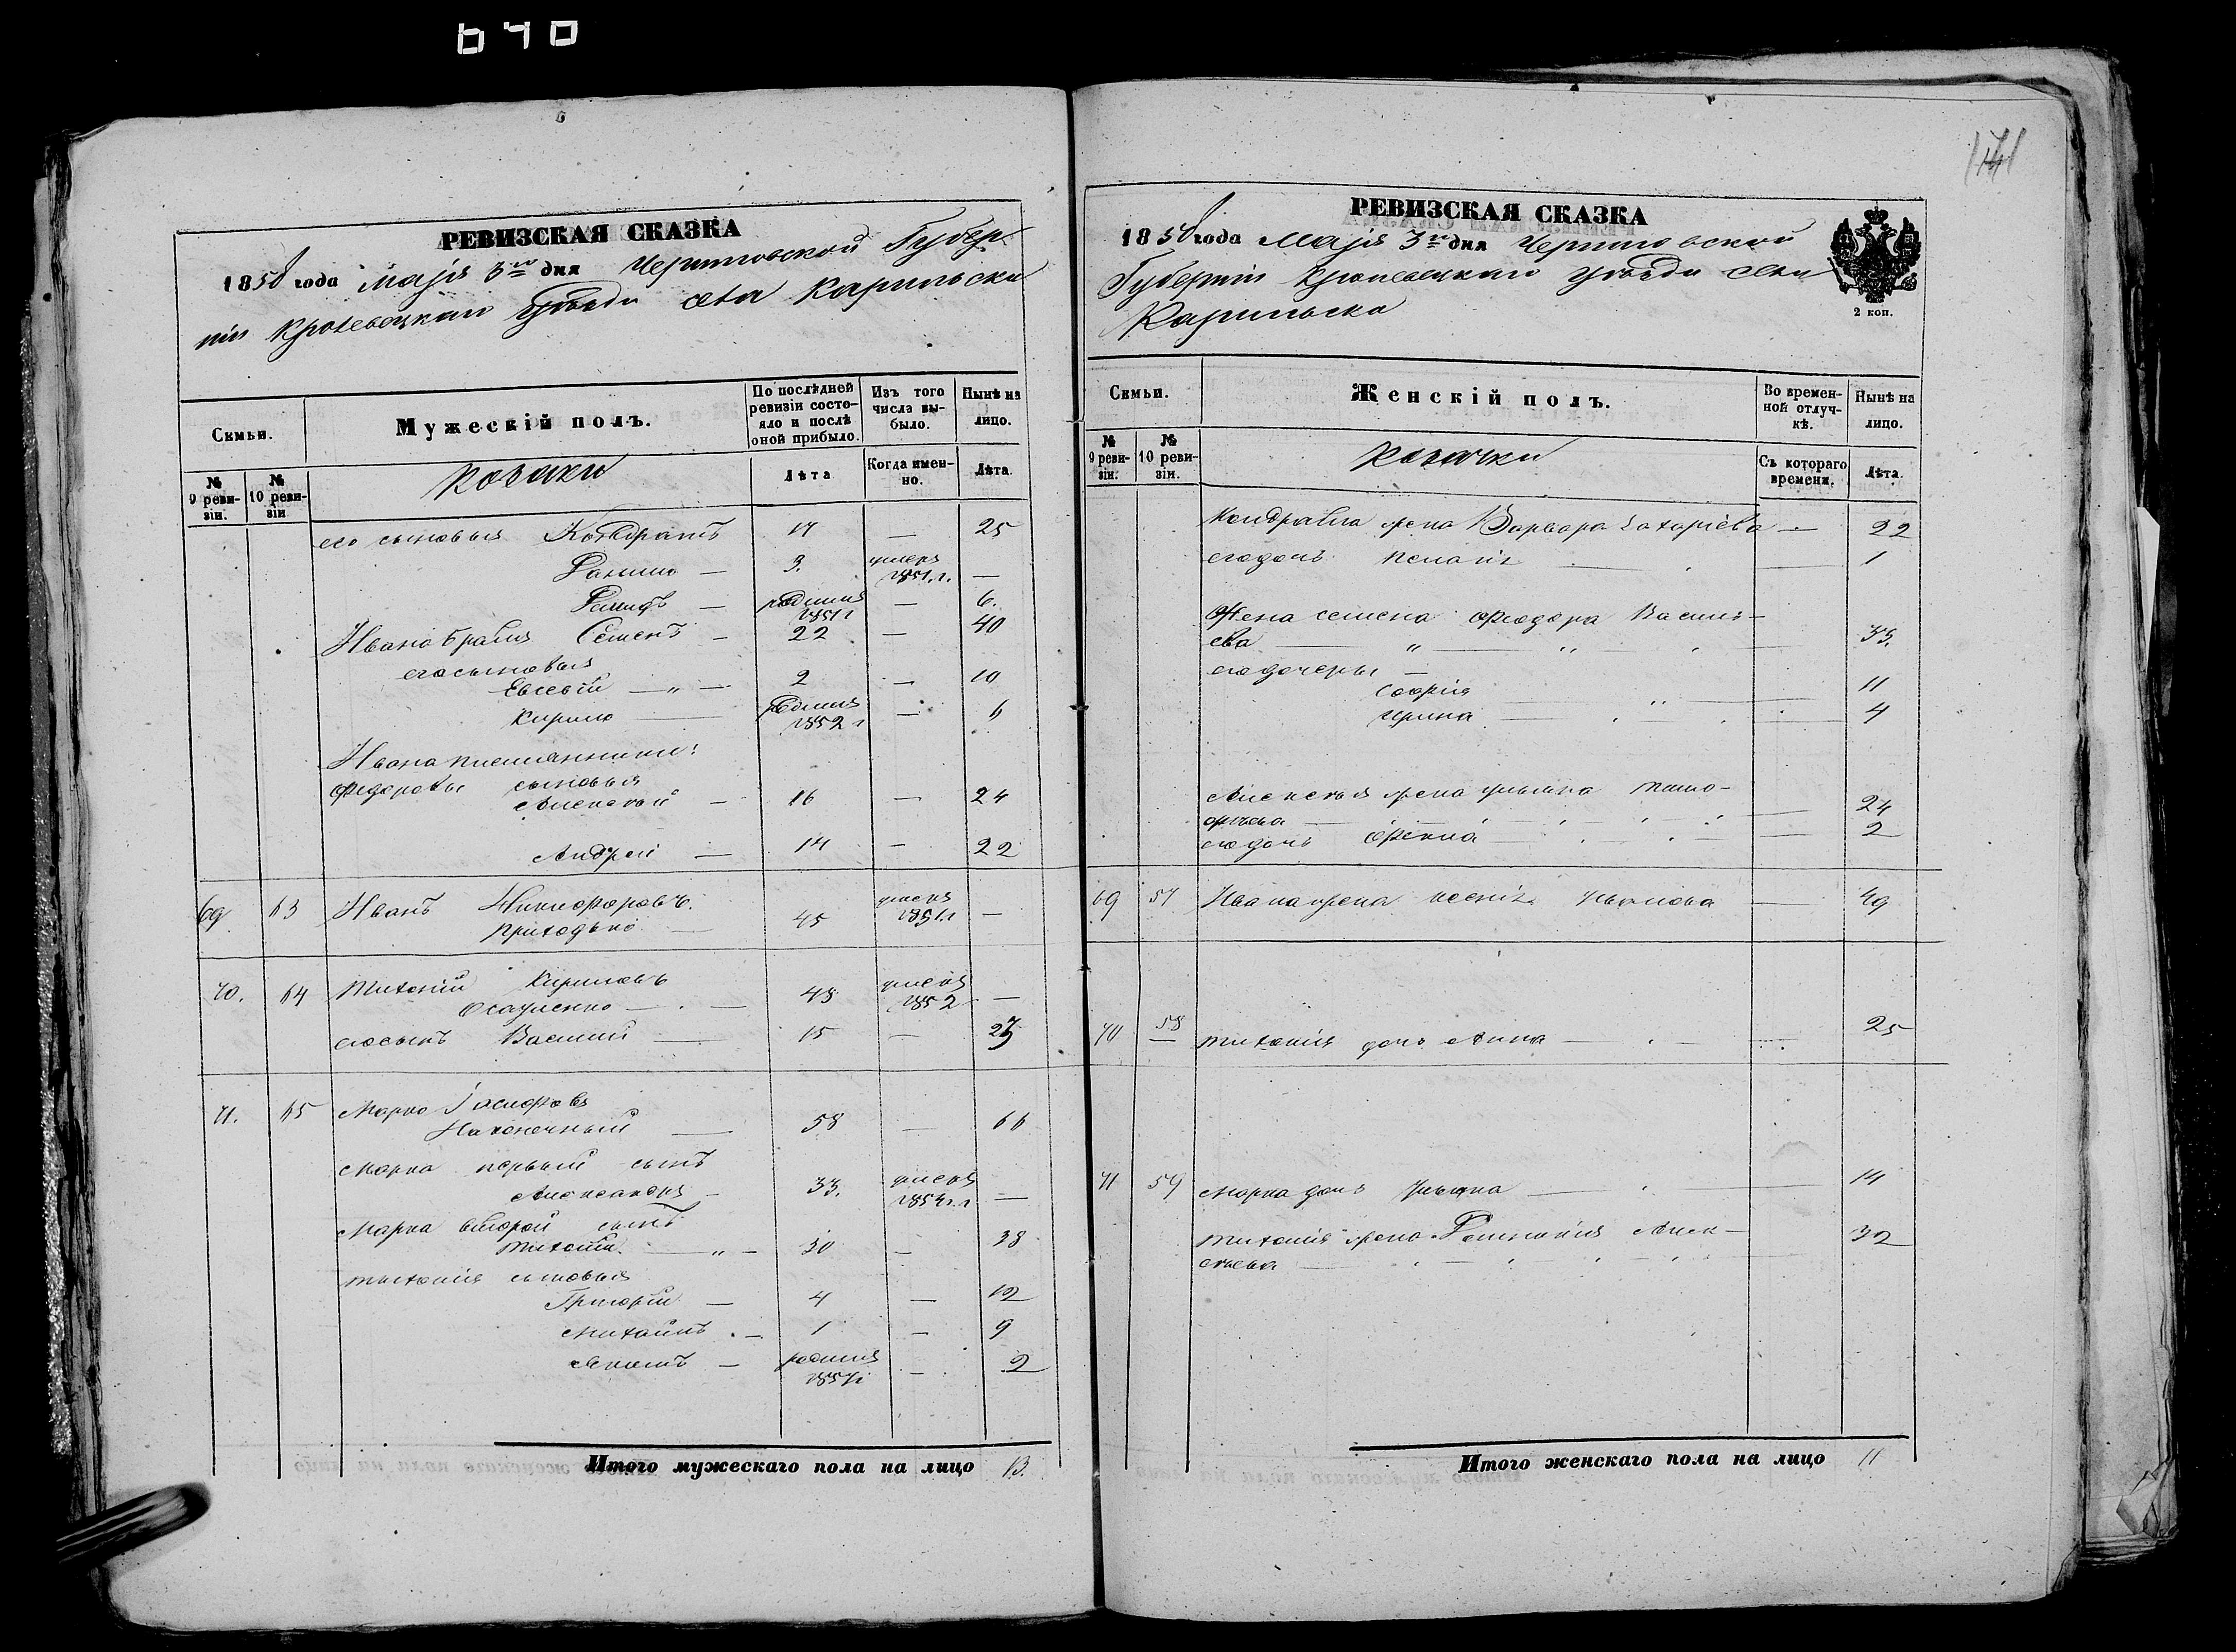 640
РЕВИЗСКАЯ СКАЗКА
1858 года Маія 3го дня Черниговской Губер-
ніи Кролевецкаго Уѣзда села Карильска
Семьи.
Мужескій полъ.
По послѣдней ревизіи состояло и послѣ оной прибыло.
Изъ того числа выбыло.
Нынѣ на лицо.
№ 9 ревизіи.
№ 10 ревизіи
Козаки
Лѣта
Когда именно.
Лѣта.
его сыновья Кондратъ 17 — 25
3. умеръ 1851. г. —
— родился 1851 г — 6.
Ивана братъ Семенъ — 22 — 40
его сыновья
Евсевій — " — 2 — 10
Кирило — родился 1852 г — 6
Ивана племянники:
Федоровы сыновья
Алексѣй — 16 — 24
Андрей — 14 — 22
69 63 Иванъ Никифоровъ.
Приходько — 45 умеръ 1851 г —
70. 64 Тихонъ Кириловъ
Осауленко — . — 48 умеръ 1852 —
его сынъ Василій — 15 — 23
71. 65 Марко Іосифовъ
Наконечный — 58 — 66
Марка первый сынъ
Александръ — 33. умеръ 1854 г. —
Марка второй сынъ
Тихонъ — " — 30 — 38
Тихонія сыновья
Григорій — 4 — 12
Михаилъ . — 1 — 9
— родился 1857 г — 2
Итого мужескаго пола на лицо 13.
171
РЕВИЗСКАЯ СКАЗКА
1858 года Маія 3го дня Черниговской
Губерніи Кролевецкаго Уѣзда села
Карильска
2 коп.
Семьи.
Женскій полъ.
Во временной отлучкѣ.
Нынѣ на лицо.
№ 9 ревизіи.
№ 10 ревизіи.
Козачки
Съ котораго времени.
Лѣта.
Кондрата жена Варвара Захаріева — 22
его дочь — 1
Жена Семена Феодора Василь-
ева — " — " — 33.
его дочеры —
Софія " — 11
Ирина — . — 4
Алексѣя жена Ульяна Тимо-
фѣева — 24
его дочь — 2
69 57 Ивана жена Ксенія — 49
70 58 Тихонія дочь Анна — . — 25
71 59 Марка дочь Ульяна — . — 14
Тихонія жена Алек-
сѣева — 32
Итого женскаго пола на лицо 11